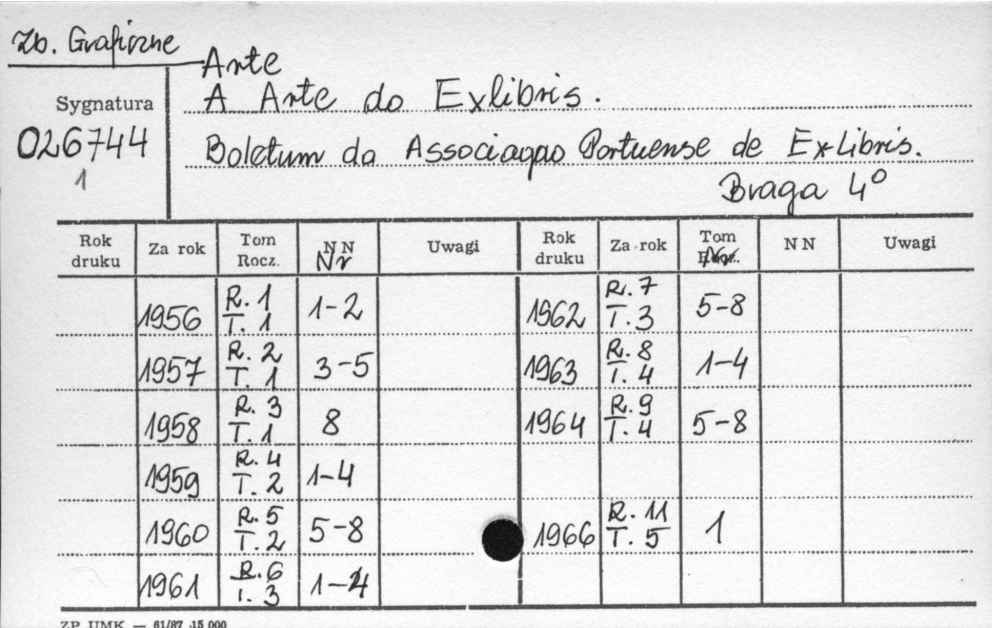 Zb. Graficzne
Arte
Sygnatura
A Arte do Exlibris.
026744
Boletum da Associaçao Portuense de Ex-Libris.
1
Braga 4º
Rok druku Za rok Tom Rocz. NN Nr Uwagi Rok druku Za rok Tom Nr NN Uwagi
1956 R. 1 T. 1 1-2 1962 R. 7 T. 3 5-8
1957 R. 2 T. 1 3-5 1963 R. 8 T. 4 1-4
1958 R. 3 T. 1 8 1964 R. 9 T. 4 5-8
1959 R. 4 T. 2 1-4
1960 R. 5 T. 2 5-8 1966 R. 11 T. 5 1
1961 R. 6 T. 3 1-4
ZP UMK — 61/87 15 000